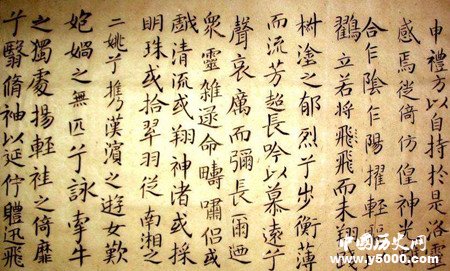 申禮方以自持於是洛靈
感焉徙倚仿偟神光
合乍陰乍陽擢輕
鸖立若將飛飛而未翔
椒塗之郁烈兮步衡薄
而流芳超長吟以慕遠兮
聲哀厲而彌長爾迺
衆靈雜遝命疇嘯侶或
戲清流或翔神渚或採
明珠或拾翠羽從南湘之
二姚兮攜漢濱之遊女歎
媧之無匹兮詠牽牛
之獨處揚輕袿之倚靡
兮翳脩袖以延佇體迅飛
中国历史网
www.y5000.com